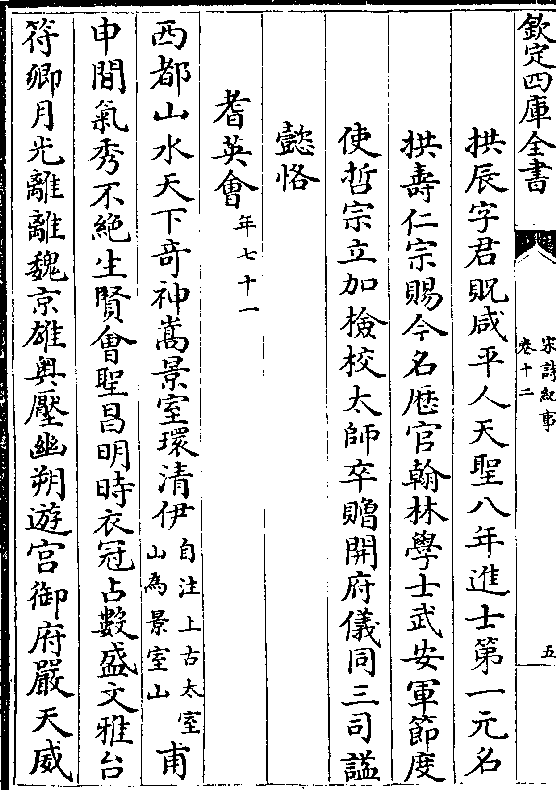 欽定四庫全書
宋詩紀事
卷十二
五
拱辰字君貺咸平人天聖八年進士第一元名
拱壽仁宗賜今名歴官翰林學士武安軍節度
使哲宗立加檢校太師卒贈開府儀同三司諡
懿恪
耆英會年七十一
西都山水天下奇神嵩景室環清伊自注上古太室山為景室山甫
申間氣秀不絶生賢會聖昌明時衣冠占數盛文雅台
符卿月光離離魏京雄奥壓幽朔遊宫御府嚴天威